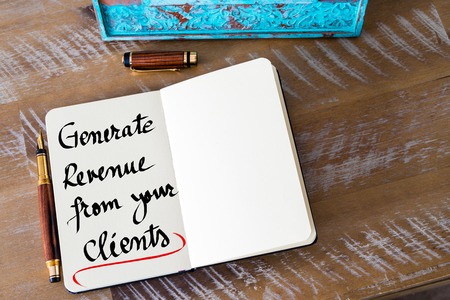 Generate
Revenue
from your
Clients